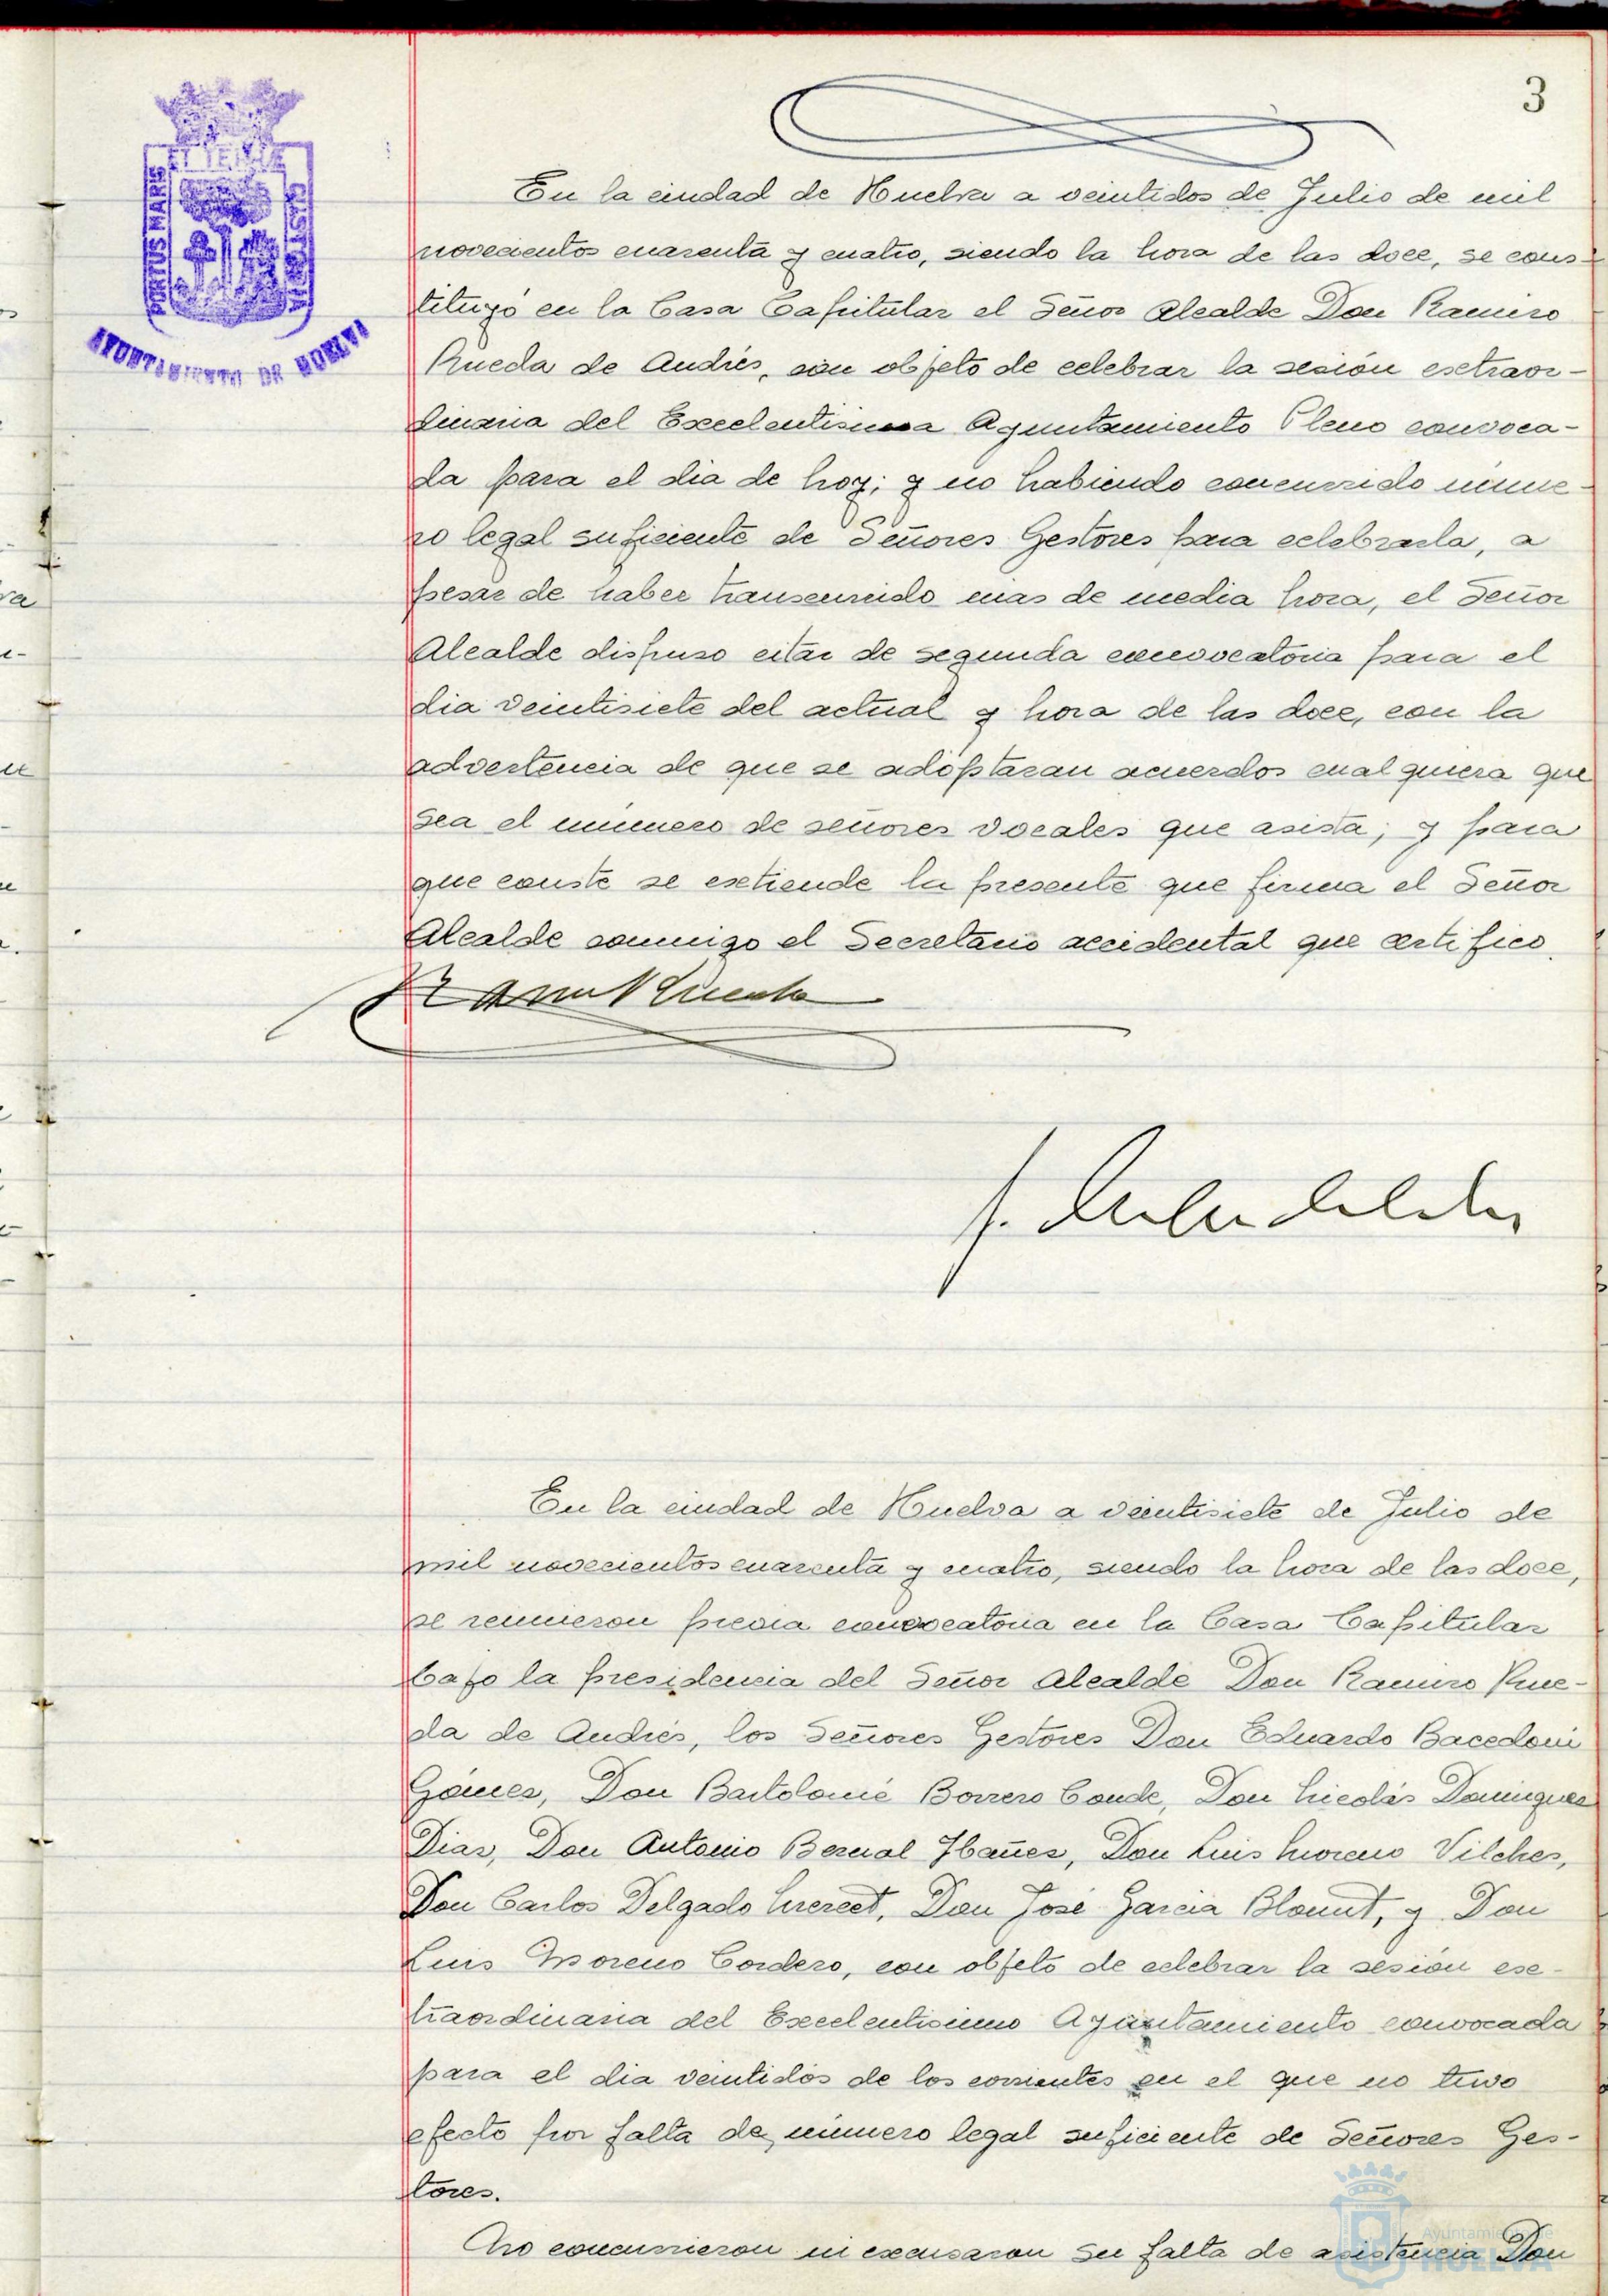 3
ET TERRAE
PORTUS MARIS
CUSTODIA
AYUNTAMIENTO DE HUELVA
En la ciudad de Huelva a veintidos de Julio de mil
novecientos cuarenta y cuatro, siendo la hora de las doce, se cons-
tituyó en la Casa Capitular el Señor Alcalde Don Ramiro
Rueda de Andrés, con objeto de celebrar la sesión extraor-
dinaria del Excelentisima Ayuntamiento Pleno convoca-
da para el dia de hoy; y no habiendo concurrido núme-
ro legal suficiente de Señores Gestores para celebrarla, a
pesar de haber transcurrido mas de media hora, el Señor
Alcalde dispuso citar de segunda convocatoria para el
dia veintisiete del actual y hora de las doce, con la
advertencia de que se adoptaran acuerdos cualquiera que
sea el número de señores vocales que asista; y para
que conste se extiende la presente que firma el Señor
Alcalde conmigo el Secretario accidental que certifico.
En la ciudad de Huelva a veintisiete de Julio de
mil novecientos cuarenta y cuatro, siendo la hora de las doce,
se reunieron previa convocatoria en la Casa Capitular
bajo la presidencia del Señor Alcalde Don Ramiro Rue-
da de Andrés, los Señores Gestores Don Eduardo Bacedoni
Gómez, Don Bartolomé Borrero Conde, Don Nicolás Dominguez
Diaz, Don Antonio Bernal Ibañez, Don Luis Moreno Vilches,
Don Carlos Delgado, Don José Garcia Blount, y Don
Luis Moreno Cordero, con objeto de celebrar la sesión ex-
traordinaria del Excelentisimo Ayuntamiento convocada
para el dia veintidós de los corrientes en el que no tuvo
efecto por falta de número legal suficiente de Señores Ges-
tores.
No concurrieron ni excusaron su falta de asistencia Don
Ayuntamiento de
HUELVA